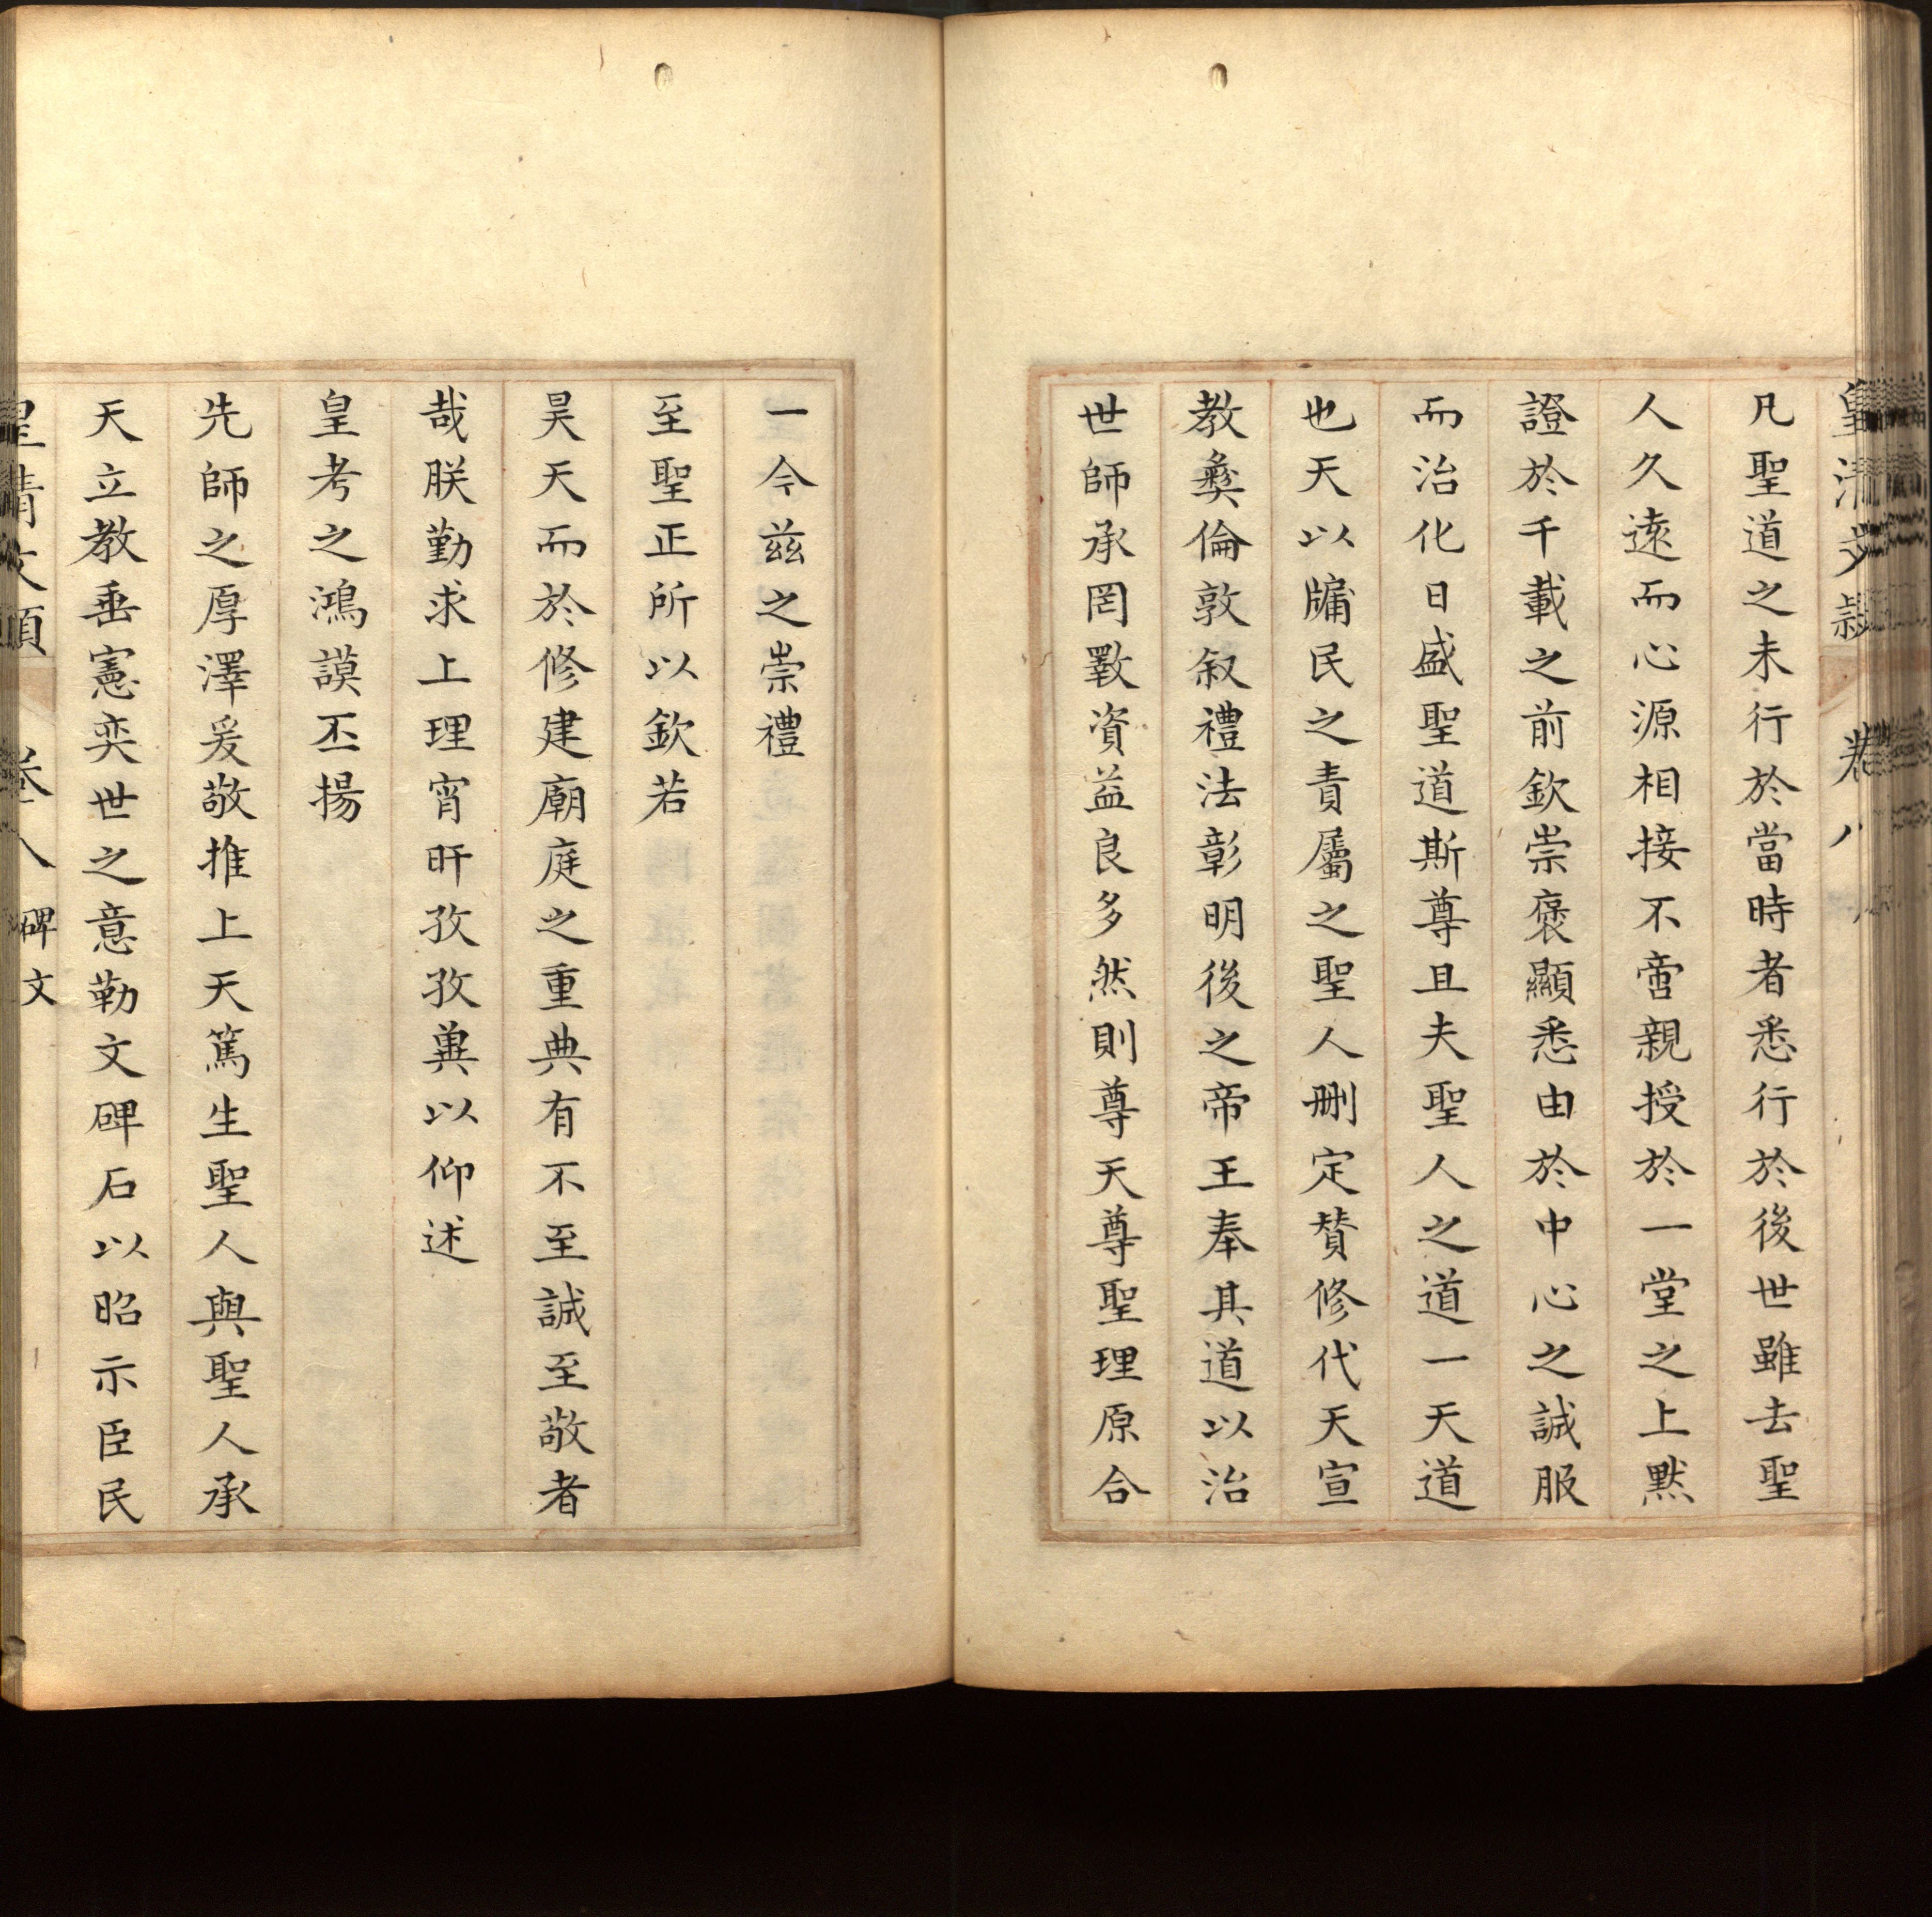 皇清文潁 卷八
凡聖道之未行於當時者悉行於後世雖去聖
人久遠而心源相接不啻親授於一堂之上默
證於千載之前欽崇褒顯悉由於中心之誠服
而治化日盛聖道斯尊且夫聖人之道一天道
也天以牖民之責屬之聖人刪定賛修代天宣
教彜倫敦叙禮法彰明後之帝王奉其道以治
世師承罔斁資益良多然則尊天尊聖理原合
一今兹之崇禮
至聖正所以欽若
昊天而於修建廟庭之重典有不至誠至敬者
哉朕勤求上理宵旰孜孜兾以仰述
皇考之鴻謨丕揚
先師之厚澤爰敬推上天篤生聖人與聖人承
天立教垂憲奕世之意勒文碑石以昭示臣民
皇清文穎 卷八 碑文